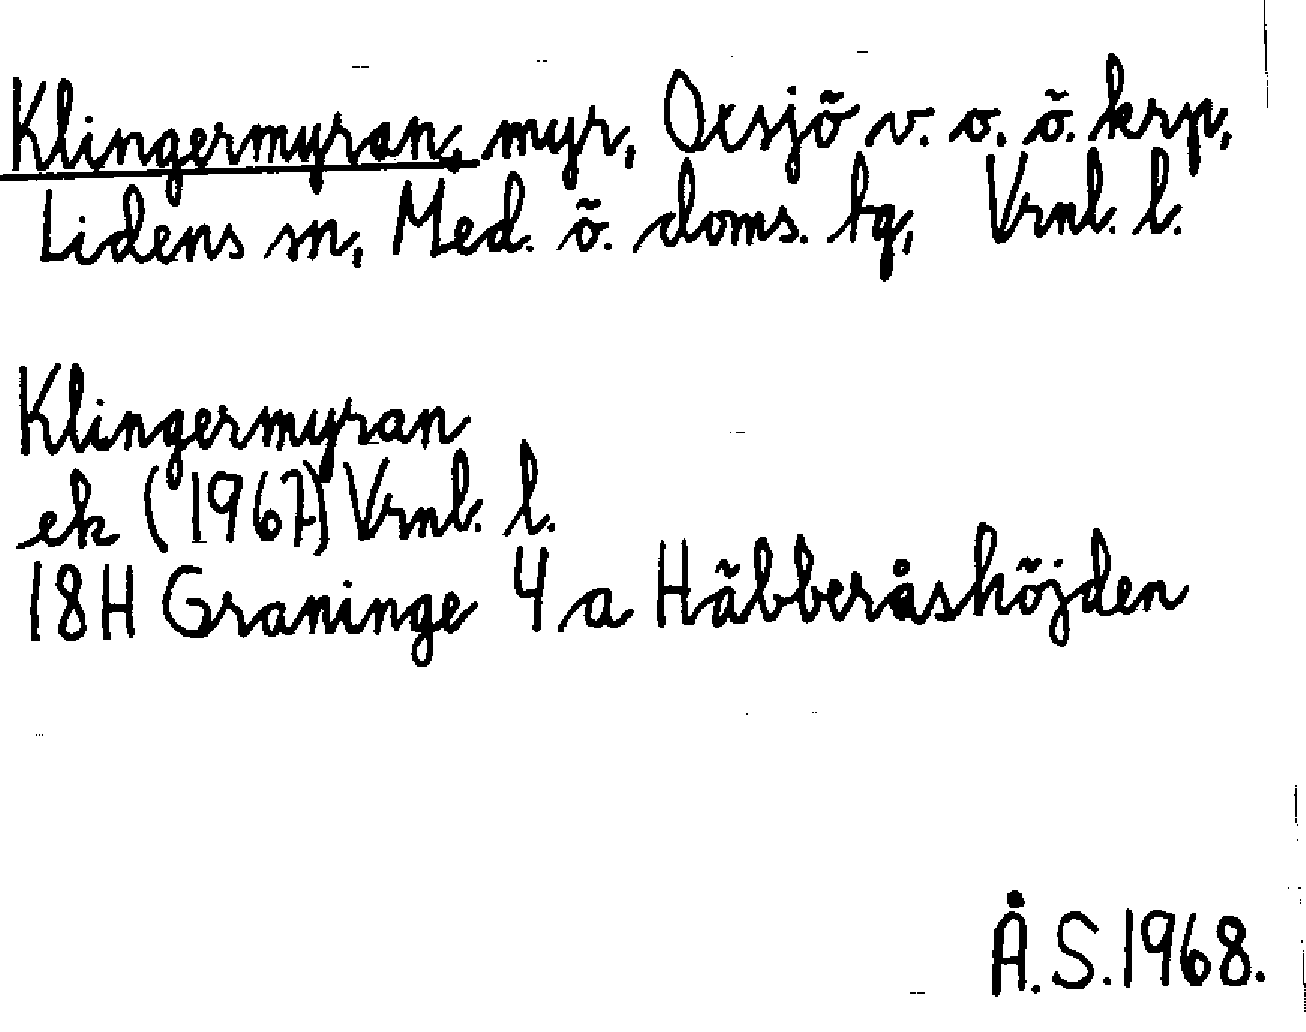 Klingermyran, myr, Oxsjö v. o. ö. krp,
Lidens sn, Med. ö. doms. tg, Vrnl. l.
Klingermyran
ek (1967) Vrnl. l.
18H Graninge 4 a Häbberåshöjden
Å.S.1968.